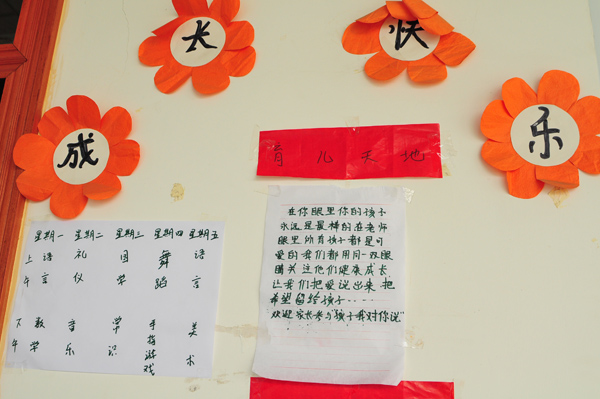 成长快乐
育儿天地
星期一 星期二 星期三 星期四 星期五
上午 语言 礼仪 国学 舞蹈 语言
下午 数学 音乐 常识 手指游戏 美术
在你眼里你的孩子
永远是最棒的在老师
眼里所有孩子都是可
爱的我们都用同一双眼
睛关注他们健康成长
让我们把爱说出来 把
希望留给孩子····
欢迎家长参与"孩子我对你说"